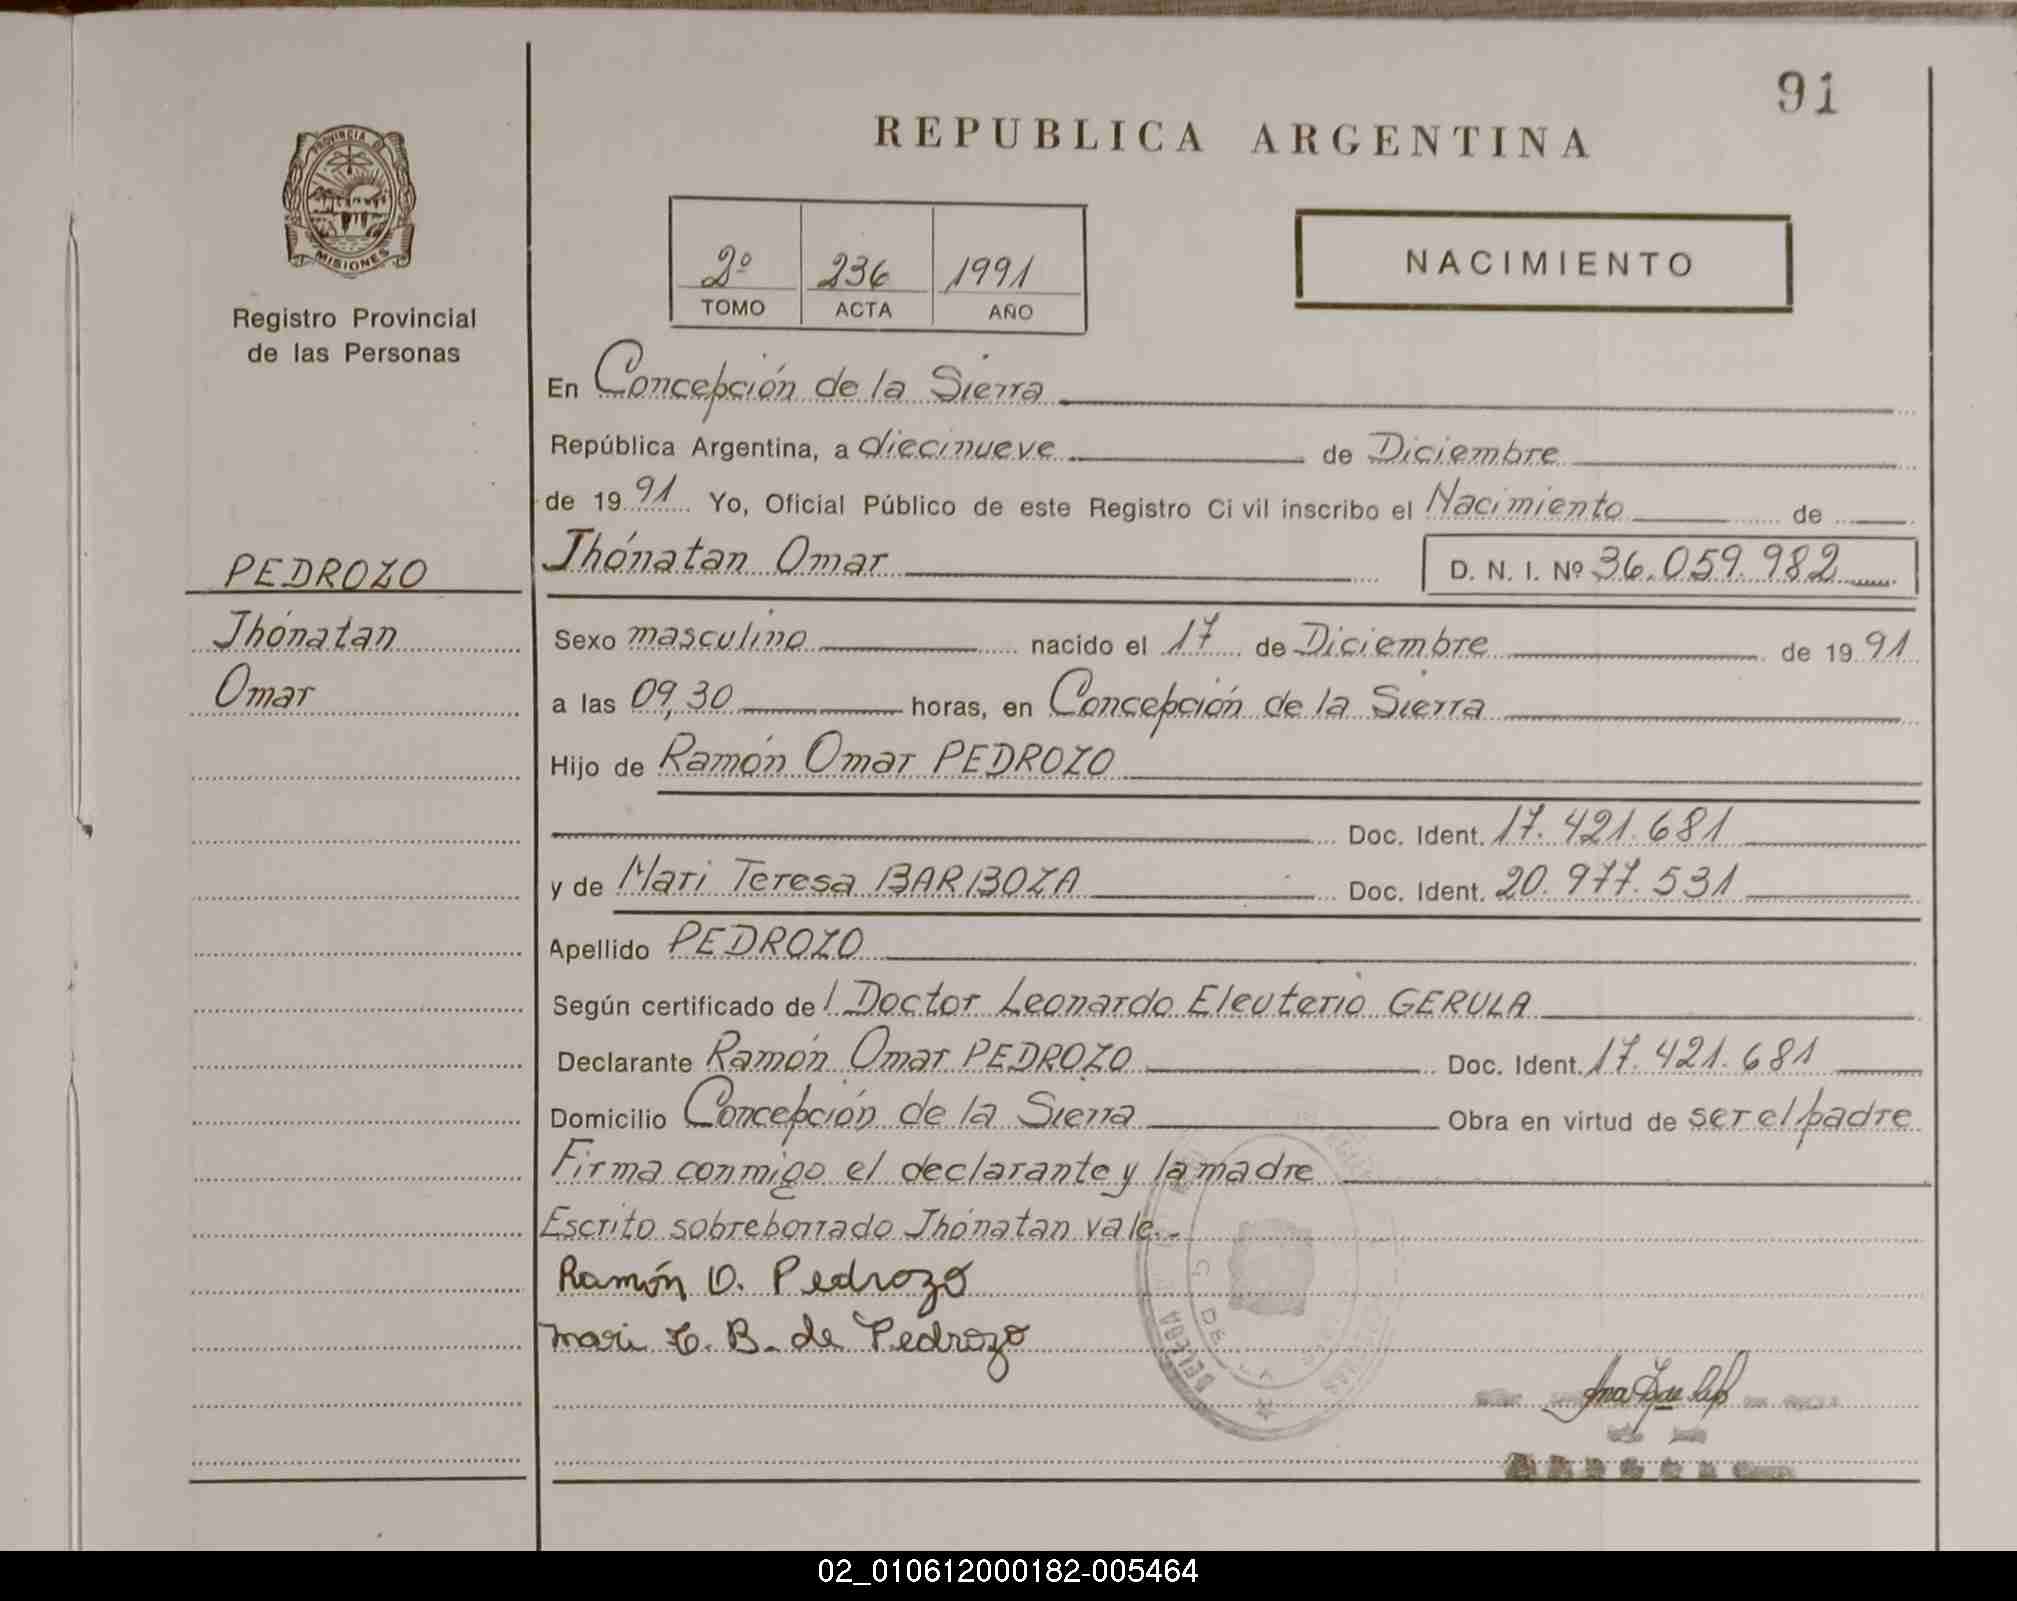 91
REPUBLICA ARGENTINA
PROVINCIA DE
MISIONES
Registro Provincial
de las Personas
2º 236 1991
TOMO ACTA AÑO
NACIMIENTO
En Concepción de la Sierra
República Argentina, a diecinueve de Diciembre
de 1991 Yo, Oficial Público de este Registro Ci vil inscribo el Nacimiento de
Jhónatan Omar D. N. I. Nº 36.059.982
PEDROZO
Jhónatan
Omar
Sexo masculino nacido el 17 de Diciembre de 1991
a las 09,30 horas, en Concepción de la Sierra
Hijo de Ramón Omar PEDROZO
Doc. Ident. 17.421.681
y de Mari Teresa BARBOZA Doc. Ident. 20.977.531
Apellido PEDROZO
Según certificado de l Doctor Leonardo Eleuterio GERULA
Declarante Ramón Omar PEDROZO Doc. Ident. 17.421.681
Domicilio Concepción de la Sierra Obra en virtud de ser el padre
Firma conmigo el declarante y la madre
Escrito sobreborrado Jhónatan vale.-
Ramón O. Pedrozo
Mari T. B. de Pedrozo
02_010612000182-005464